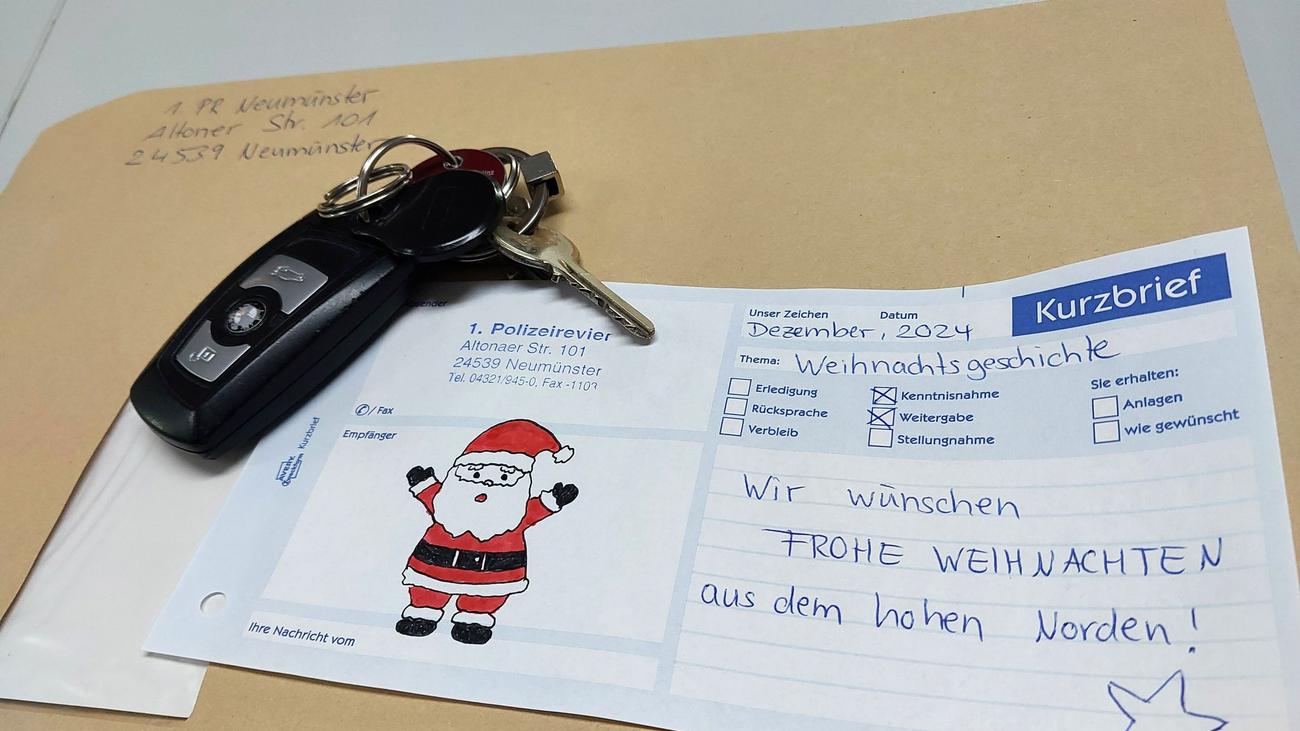 1. PR Neumünster
Altoner Str. 101
24539 Neumünster
Kurzbrief
1. Polizeirevier
Altonaer Str. 101
24539 Neumünster
Tel. 04321/945-0, Fax -1103
✆/ Fax
Empfänger
Ihre Nachricht vom
Kurzbrief
Unser Zeichen Datum
Dezember, 2024
Thema: Weihnachtsgeschichte
Erledigung
Rücksprache
Verbleib
Kenntnisnahme
Weitergabe
Stellungnahme
Sie erhalten:
Anlagen
wie gewünscht
Wir wünschen
FROHE WEIHNACHTEN
aus dem hohen Norden!